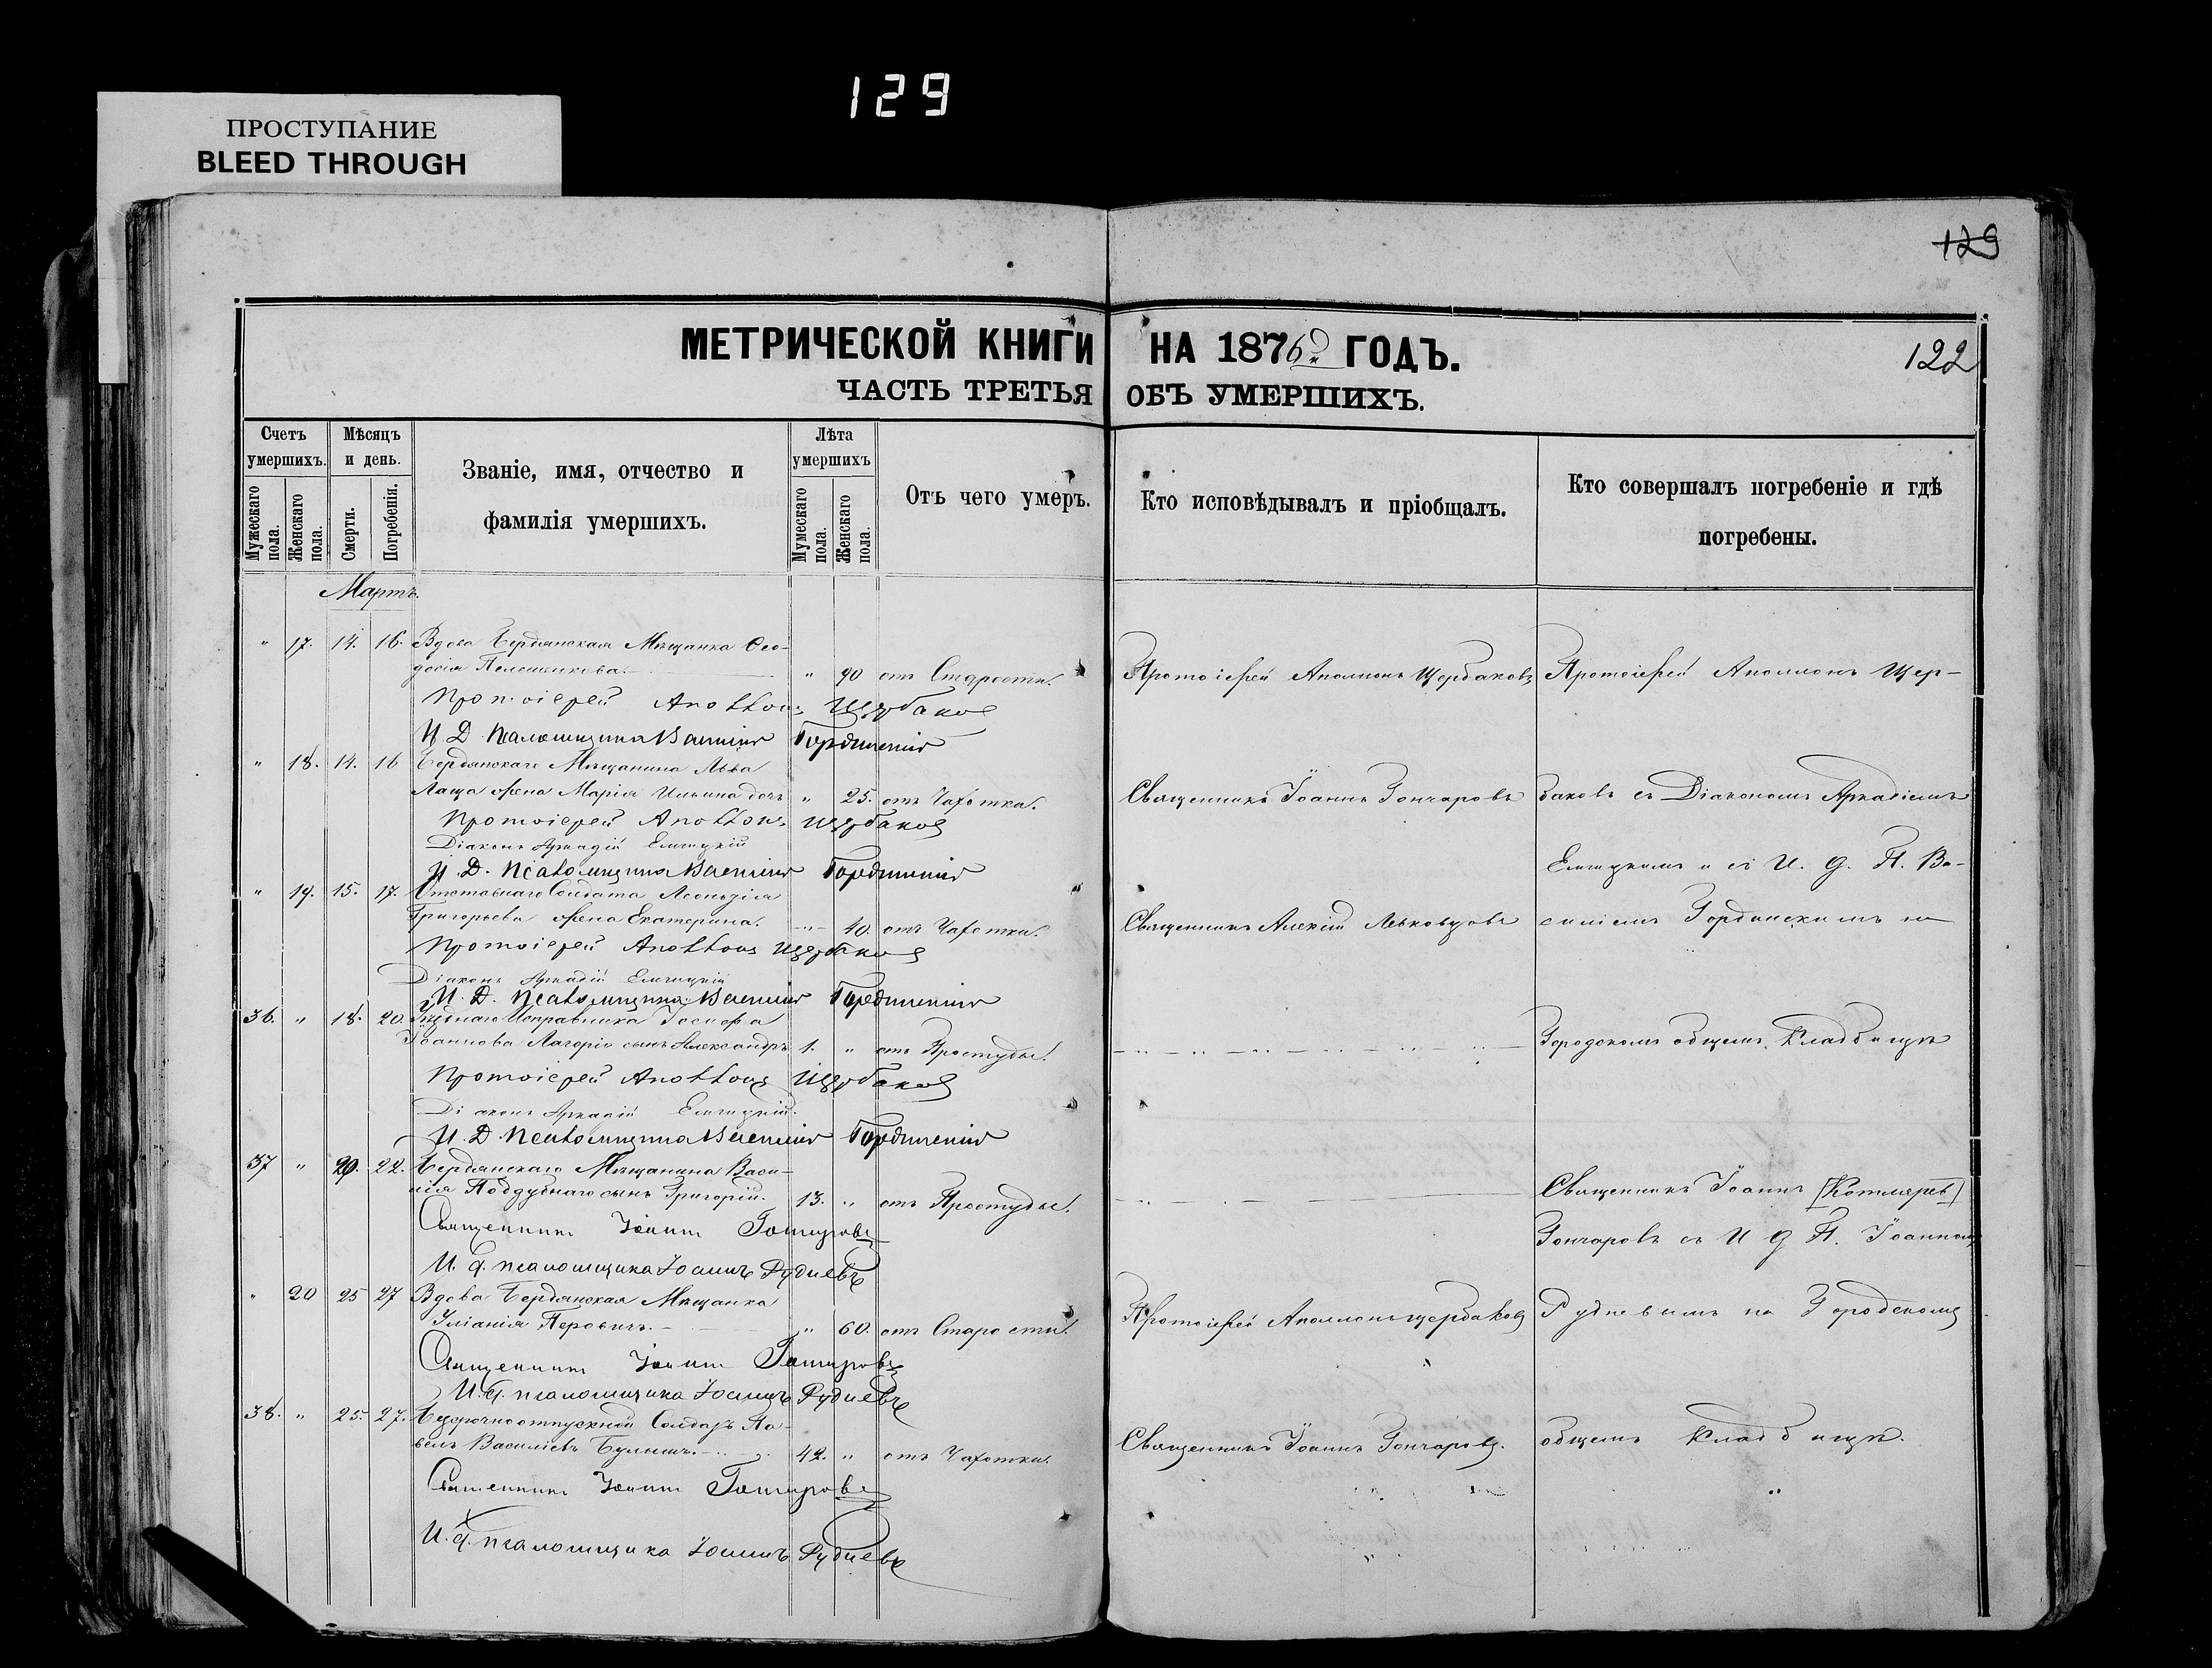 129
ПРОСТУПАНИЕ
BLEED THROUGH
129
МЕТРИЧЕСКОЙ КНИГИ НА 1876й ГОДЪ.
122
ЧАСТЬ ТРЕТЬЯ ОБЪ УМЕРШИХЪ.
Счетъ умершихъ.
Мужескаго пола.
Женскаго пола.
Мѣсяцъ и день.
Смерти.
Погребенія.
Званіе, имя, отчество и
фамилія умершихъ.
Лѣта умершихъ
Мумескаго пола.
Женскаго пола.
Отъ чего умеръ.
Кто исповѣдывалъ и пріобщалъ.
Кто совершалъ погребеніе и гдѣ
погребены.
Мартъ.
" 17. 14. 16. Вдова Бердянская Мѣщанка Ѳео-
досія " 90 отъ Старости. Протоіерей Аполлонъ Щербаковъ Протоіерей Аполлонъ Щер-
Протоіерей Аполлонъ Щербаковъ
И. Д. Псаломщика Василий
" 18. 14. 16 Бердянскаго Мѣщанина Льва
Лаща жена Марія Ильина дочь " 25. отъ Чахотки. Священникъ Іоаннъ Гончаровъ баковъ съ Діакономъ Аркадіемъ
Протоіерей Аполлонъ Щербаковъ
Діаконъ Аркадій
И. Д. Псаломщика Василий
и съ И. д. П. Ва-
" 19. 15. 17. Отставнаго Солдата
Григорьева жена Екатерина. " 40. отъ Чахотки. Священникъ Алексій Левковцовъ силіемъ на
Протоіерей Аполлонъ Щербаковъ
Діаконъ Аркадій
И. Д. Псаломщика Василий
36. " 18. 20. Уѣзднаго Исправника Іосифа
Іоаннова Лагоріо сынъ Александръ 1. " отъ Простуды. Городскомъ общемъ Кладбищѣ
Протоіерей Аполлонъ Щербаковъ
Діаконъ Аркадій
И. Д. Псаломщика Василий
37 " 20. 22. Бердянскаго Мѣщанина Васи-
лія Поддубнаго сынъ Григорій. 13. " отъ Простуды. Священникъ Іоаннъ [Котляревъ]
Священникъ Іоаннъ Гончаровъ
Гончаровъ съ И д П. Іоанномъ
И. д. псаломщика Іоаннъ Рудневъ
" 20 25 27 Вдова Бердянская Мѣщанка
Уліанія " 60. отъ Старости. Протоіерей Аполлонъ Щербаковъ Рудневымъ на Городскомъ
Священникъ Іоаннъ Гончаровъ
И. д. псаломщика Іоаннъ Рудневъ
38. " 25. 27. Безсрочноотпускной Солдатъ Па-
велъ Василіевъ 42. " отъ Чахотки. Священникъ Іоаннъ Гончаровъ. общемъ Кладбищѣ.
Священникъ Іоаннъ Гончаровъ
И. д. псаломщика Іоаннъ Рудневъ